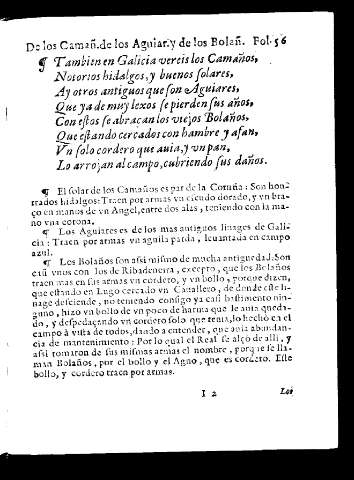 De los Camañ. de los Aguiar. y de los Bolañ. Fol. 56
¶ Tambien en Galicia vereis los Camaños,
Notorios hidalgos, y buenos solares,
Ay otros antiguos que son Aguiares,
Que ya de muy lexos se pierden sus años,
Con estos se abraçan los viejos Bolaños,
Que estando cercados con hambre y afan,
Vn solo cordero que auia, y vn pan,
Lo arrojan al campo, cubriendo sus daños.
¶ El solar de los Camaños es par de la Coruña: Son hon-
rados hidalgos: Traen por armas vn escudo dorado, y vn bra-
ço en manos de vn Angel, entre dos alas, teniendo con la ma-
no vna corona.
¶ Los Aguiares es de los mas antiguos linages de Gali-
cia: Traen por armas vn aguila parda, leuantada en campo
azul.
¶ Los Bolaños son assi mismo de mucha antiguedad. Son
casi vnos con los de Ribadeneira, excepto, que los Bolaños
traen mas en sus armas vn cordero, y vn bollo, porque dizen,
que estando en Lugo cercado vn Cauallero, de donde este li-
nage desciende, no teniendo consigo ya casi bastimento nin-
guno, hizo vn bollo de vn poco de harina que le auia queda-
do, y despedaçando vn cordero solo que tenia, lo hechò en el
campo à vista de todos, dando a entender, que auia abundan-
cia de mantenimiento: Por lo qual el Real se alçò de alli, y
assi tomaron de sus mismas armas el nombre, porque se lla-
man Bolaños, por el bollo y el Agno, que es cordero. Este
bollo, y cordero traen por armas.
I 2 Los